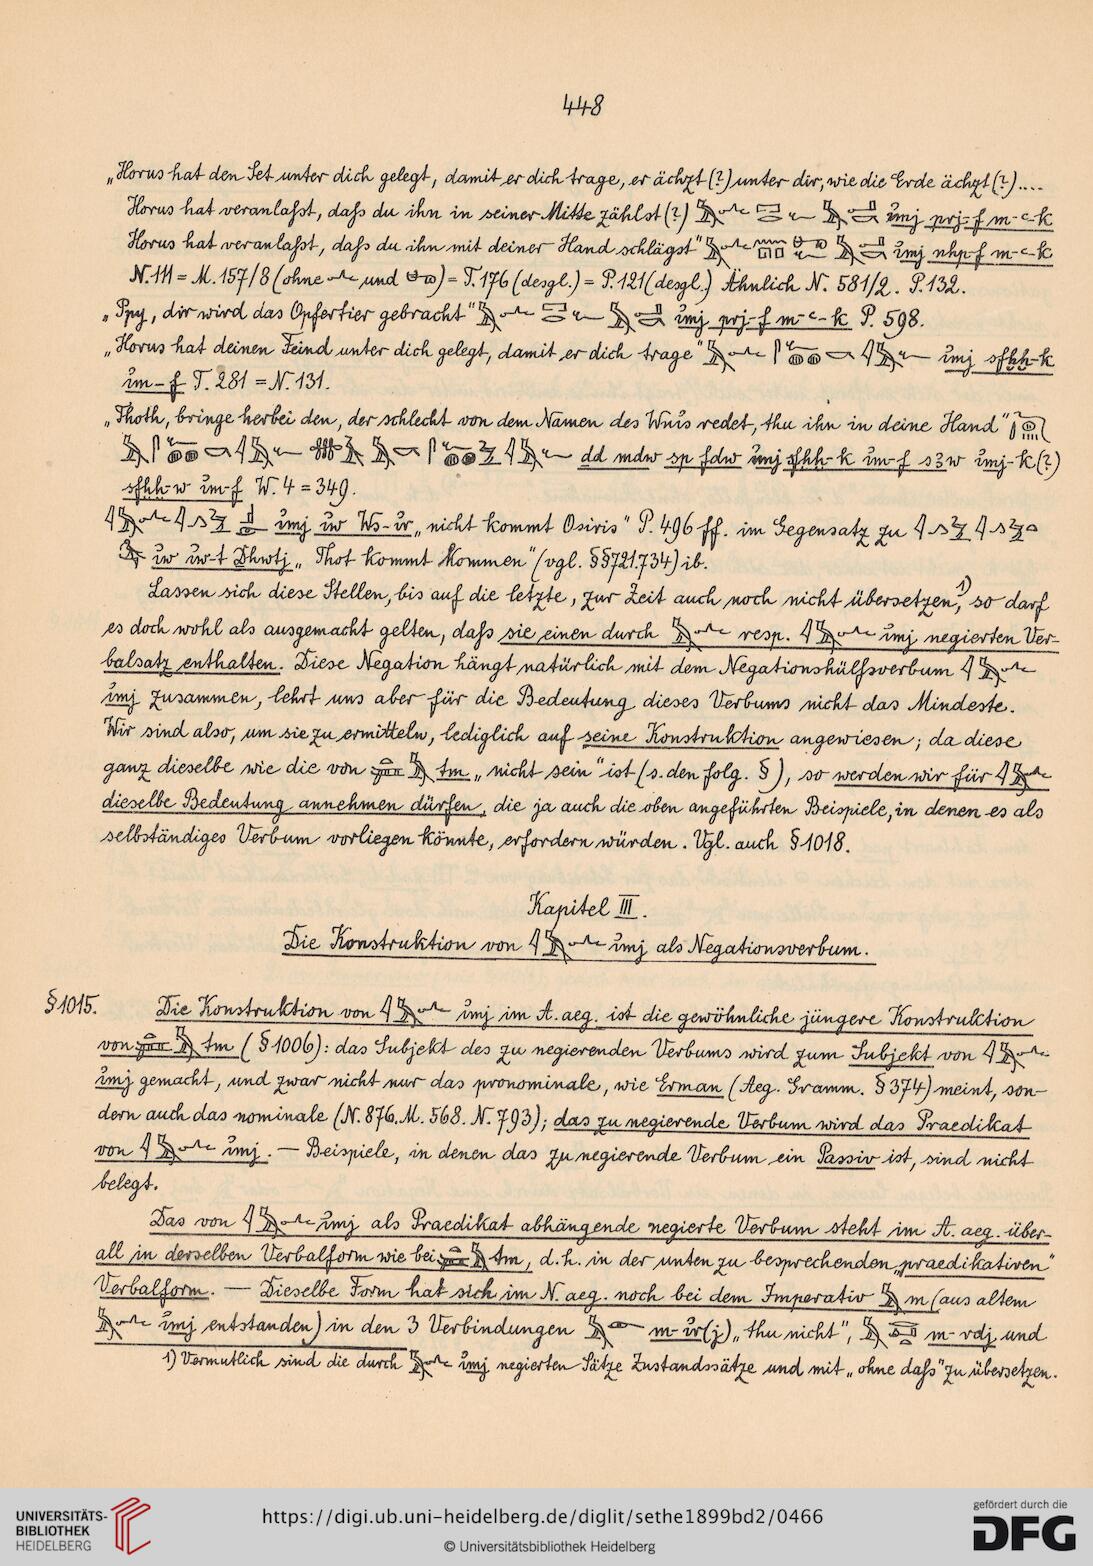 448
„Horus hat den Set unter dich gelegt, damit er dich trage, er ächzt(?) unter dir, wie die Erde ächzt(?)....
Horus hat veranlaßt, daß du ihn in seiner Mitte zählst(?) i̓mj prj-f m-ꜥ-k
Horus hat veranlaßt, daß du ihn mit deiner Hand schlägst“ i̓mj nhp-f m-ꜥ-k
N. 111 = M. 157/8 (ohne und ) = T. 176 (desgl.) = P. 121 (desgl.) Ähnlich N. 581/2. P. 132.
„Ppy, dir wird das Opfertier gebracht“ i̓mj prj-f m-ꜥ-k P. 598.
„Horus hat deinen Feind unter dich gelegt, damit er dich trage“ i̓mj sfḫḫ-k
i̓m-f T. 281 = N. 131.
„Thoth, bringe herbei den, der schlecht von dem Namen des Wnı̓s redet, thu ihn in deine Hand“
dd mdw sp fdw i̓mj sfḫḫ-k i̓m-f sꜣw i̓mj-k(?)
sfḫḫ-w i̓m-f W. 4 = 349.
i̓mj i̓w Ws-i̓r „nicht kommt Osiris“ P. 496 ff. im Gegensatz zu
i̓w i̓w-t Ḏḥwtj „Thot kommt Kommen“ (vgl. §§721.734) ib.
Lassen sich diese Stellen, bis auf die letzte, zur Zeit auch noch nicht übersetzen¹), so darf
es doch wohl als ausgemacht gelten, daß sie einen durch resp. i̓mj negierten Ver-
balsatz enthalten. Diese Negation hängt natürlich mit dem Negationshülfsverbum
i̓mj zusammen, lehrt uns aber für die Bedeutung dieses Verbums nicht das Mindeste.
Wir sind also, um sie zu ermitteln, lediglich auf seine Konstruktion angewiesen; da diese
ganz dieselbe wie die von tm „nicht sein“ ist (s. den folg. §), so werden wir für
dieselbe Bedeutung annehmen dürfen, die ja auch die oben angeführten Beispiele, in denen es als
selbständiges Verbum vorliegen könnte, erfordern würden. Vgl. auch §1018.
Kapitel III.
Die Konstruktion von i̓mj als Negationsverbum.
§1015. Die Konstruktion von i̓mj im A. aeg. ist die gewöhnliche jüngere Konstruktion
von tm (§1006): das Subjekt des zu negierenden Verbums wird zum Subjekt von
i̓mj gemacht, und zwar nicht nur das pronominale, wie Erman (Aeg. Gramm. §374) meint, son-
dern auch das nominale (N. 876. M. 568. N. 793); das zu negierende Verbum wird das Praedikat
von i̓mj. — Beispiele, in denen das zu negierende Verbum ein Passiv ist, sind nicht
belegt.
Das von i̓mj als Praedikat abhängende negierte Verbum steht im A. aeg. über-
all in derselben Verbalform wie bei tm, d.h. in der unten zu besprechenden „praedikativen“
Verbalform. — Dieselbe Form hat sich im N. aeg. noch bei dem Imperativ m (aus altem
i̓mj entstanden) in den 3 Verbindungen m-i̓r(j) „thu nicht“, m-rdj und
1) Vermutlich sind die durch i̓mj negierten Sätze Zustandssätze und mit „ohne daß“ zu übersetzen.
UNIVERSITÄTS-
BIBLIOTHEK
HEIDELBERG
https://digi.ub.uni-heidelberg.de/diglit/sethe1899bd2/0466
© Universitätsbibliothek Heidelberg
gefördert durch die
DFG